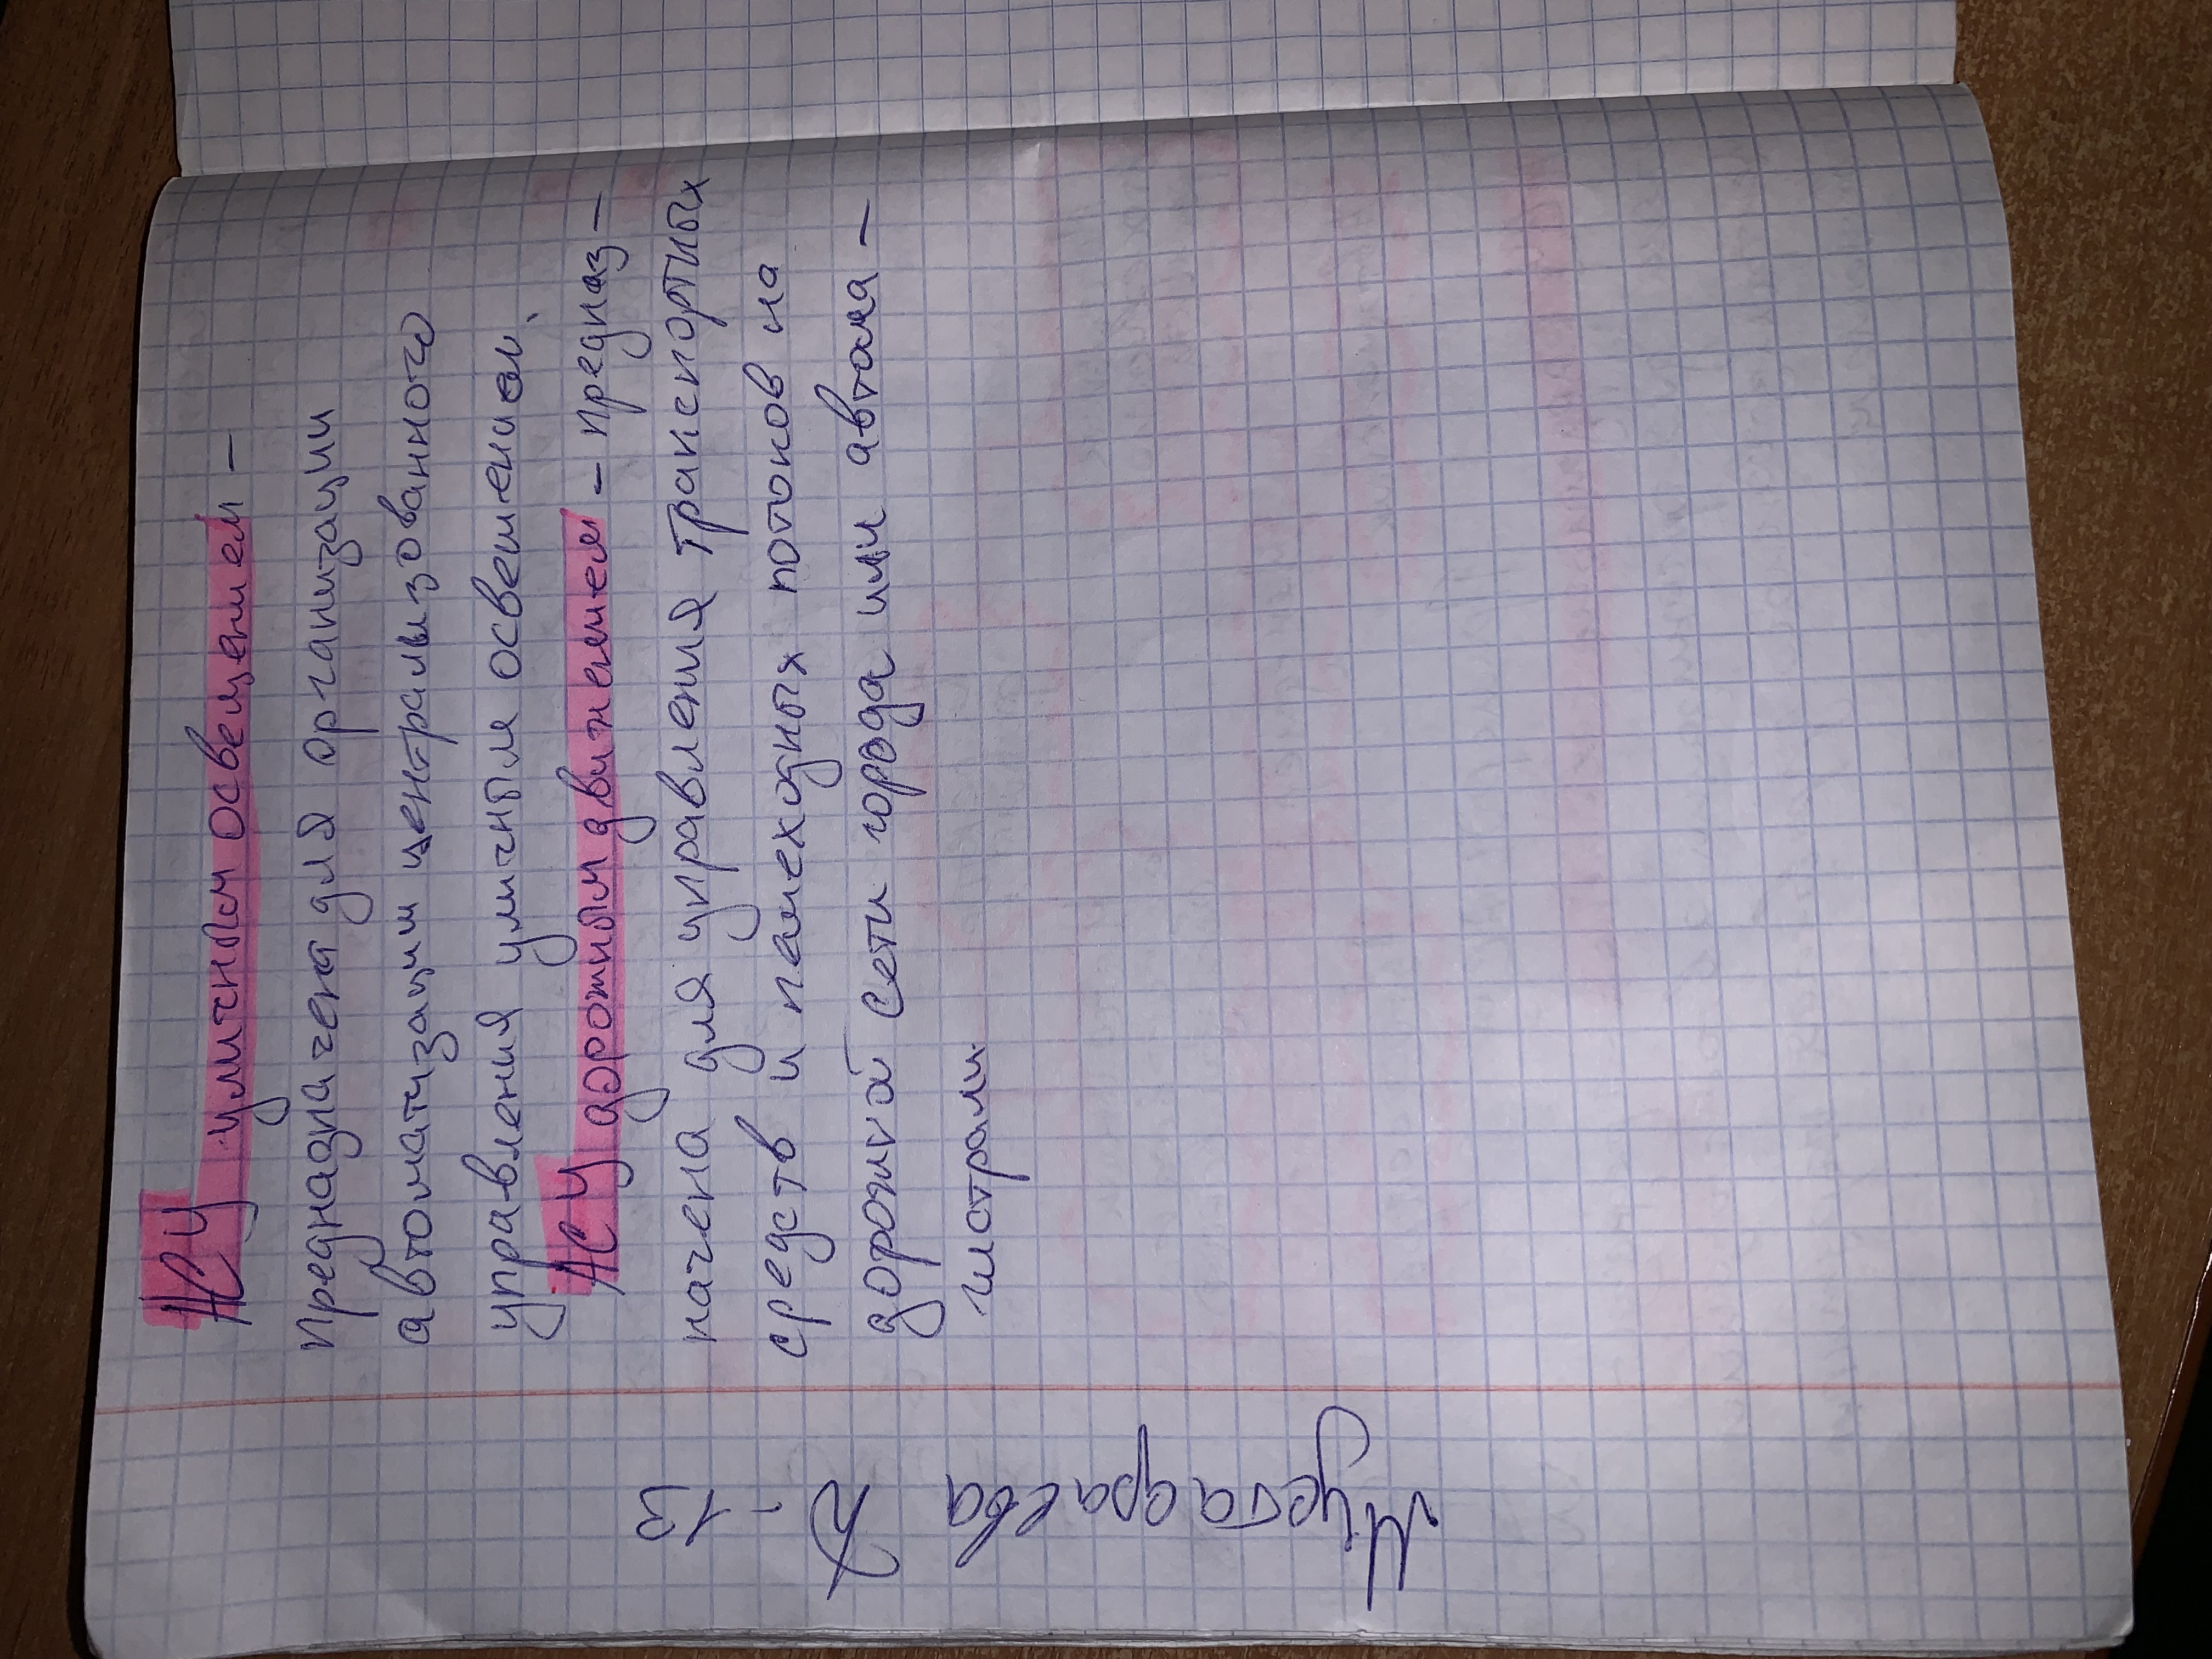 АСУ уличным освещением -
Предназначена для организации
автоматизации централизованного
управления уличным освещением.
АСУ дорожным движением - предназ-
начена для управления транспортных
средств и пешеходных потоков на
дорожной сети города или автома-
гистрали.